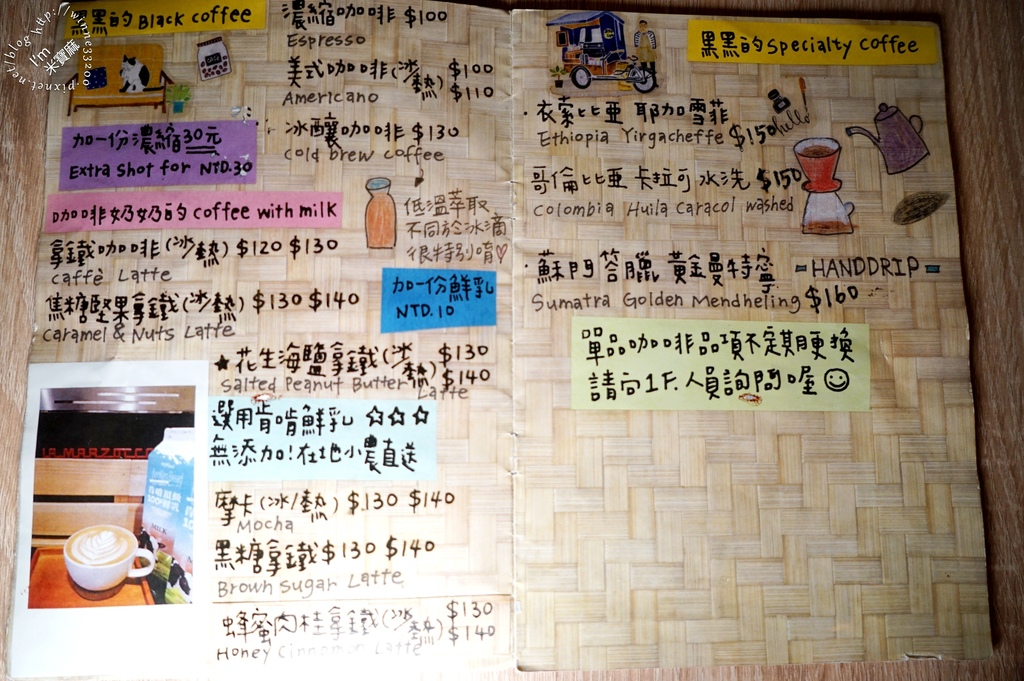 黑黑的 Black coffee
濃縮咖啡 $100
Espresso
美式咖啡(冰/熱) $100 $110
Americano
冰釀咖啡 $130
Cold brew coffee
加一份濃縮30元
Extra Shot for NTD.30
低溫萃取
不同於冰滴
很特別唷♡
咖啡奶奶的 coffee with milk
拿鐵咖啡(冰/熱) $120 $130
caffè Latte
焦糖堅果拿鐵(冰/熱) $130 $140
Caramel & Nuts Latte
加一份鮮乳
NTD.10
★花生海鹽拿鐵(冰/熱) $130 $140
Salted Peanut Butter Latte
選用肯啃鮮乳 ☆☆☆
無添加!在地小農直送
摩卡(冰/熱) $130 $140
Mocha
黑糖拿鐵 $130 $140
Brown Sugar Latte
蜂蜜肉桂拿鐵(冰/熱) $130 $140
Honey Cinnamon Latte
黑黑的 Specialty Coffee
hello
·衣索比亞 耶加雪菲
Ethiopia Yirgacheffe $150
哥倫比亞 卡拉可 水洗 $150
Colombia Huila Caracol washed
·蘇門答臘 黃金曼特寧
HANDDRIP
Sumatra Golden Mendheling $160
單品咖啡品項不定期更換
請向1F.人員詢問喔☺
I'm 米寶麻